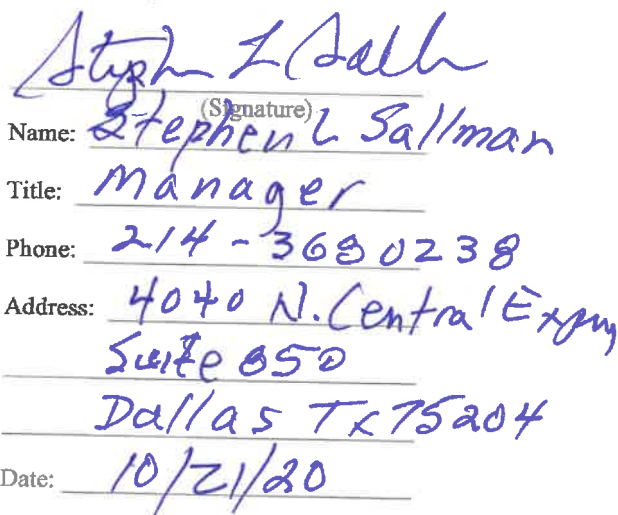 Stephen L Sallman
(Signature)
Name: Stephen L Sallman
Title: Manager
Phone: 214-3680238
Address: 4040 N. Central Expwy
Suite 850
Dallas Tx 75204
Date: 10/21/20